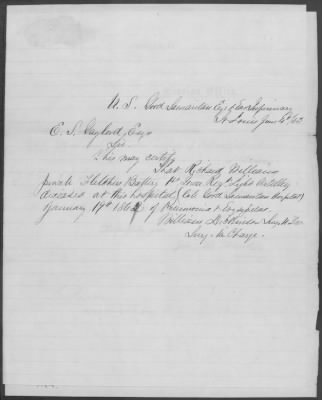 U. S. Good Samaritan Eye & Ear Infirmary
St Louis June 4th 63
E. S. Gaylord, Esq
Sir
This may certify
That Richard Williams
private Battery 1st Iowa Regt Light Artillery
deceased at this hospital (late Good Samaritan Hospital)
January 19th 1862 of Pneumonia & Erysipelas.
William Dickinson Surg U. S. V.
Surg in Charge.